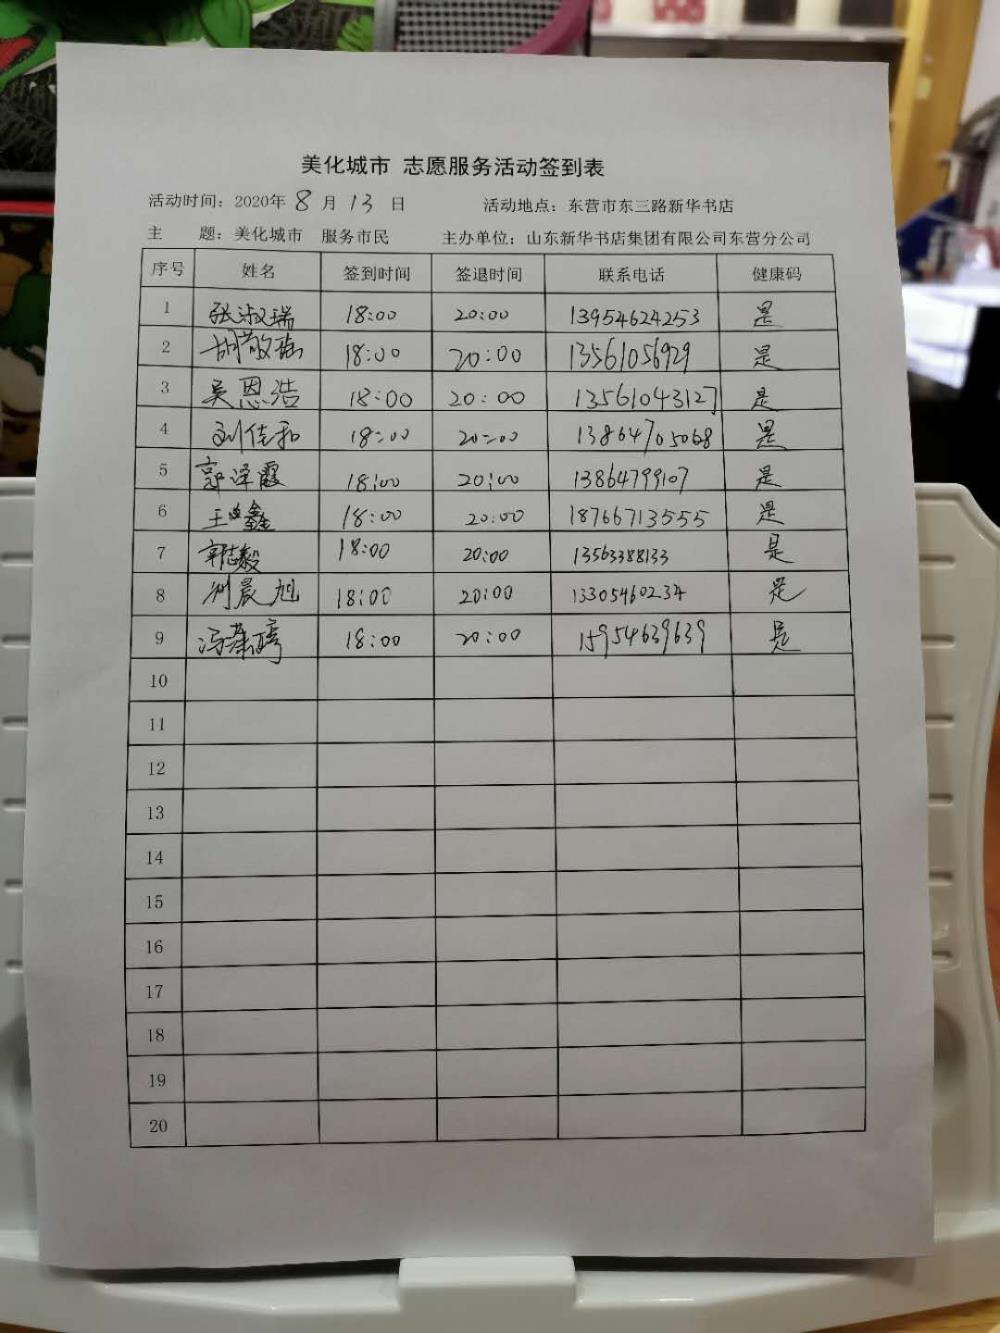 美化城市 志愿服务活动签到表
活动时间：2020年 8 月 13 日 活动地点：东营市东三路新华书店
主 题：美化城市 服务市民 主办单位：山东新华书店集团有限公司东营分公司
序号 姓名 签到时间 签退时间 联系电话 健康码
1 张淑瑞 18:00 20:00 13954624253 是
2 胡敬 18:00 20:00 13561056929 是
3 吴恩浩 18:00 20:00 13561043127 是
4 刘佳和 18:00 20:00 13864705068 是
5 郭泽霞 18:00 20:00 13864799107 是
6 王 鑫 18:00 20:00 18766713555 是
7 郭志毅 18:00 20:00 13563388133 是
8 刘晨旭 18:00 20:00 13305460234 是
9 冯 18:00 20:00 15954639639 是
10
11
12
13
14
15
16
17
18
19
20